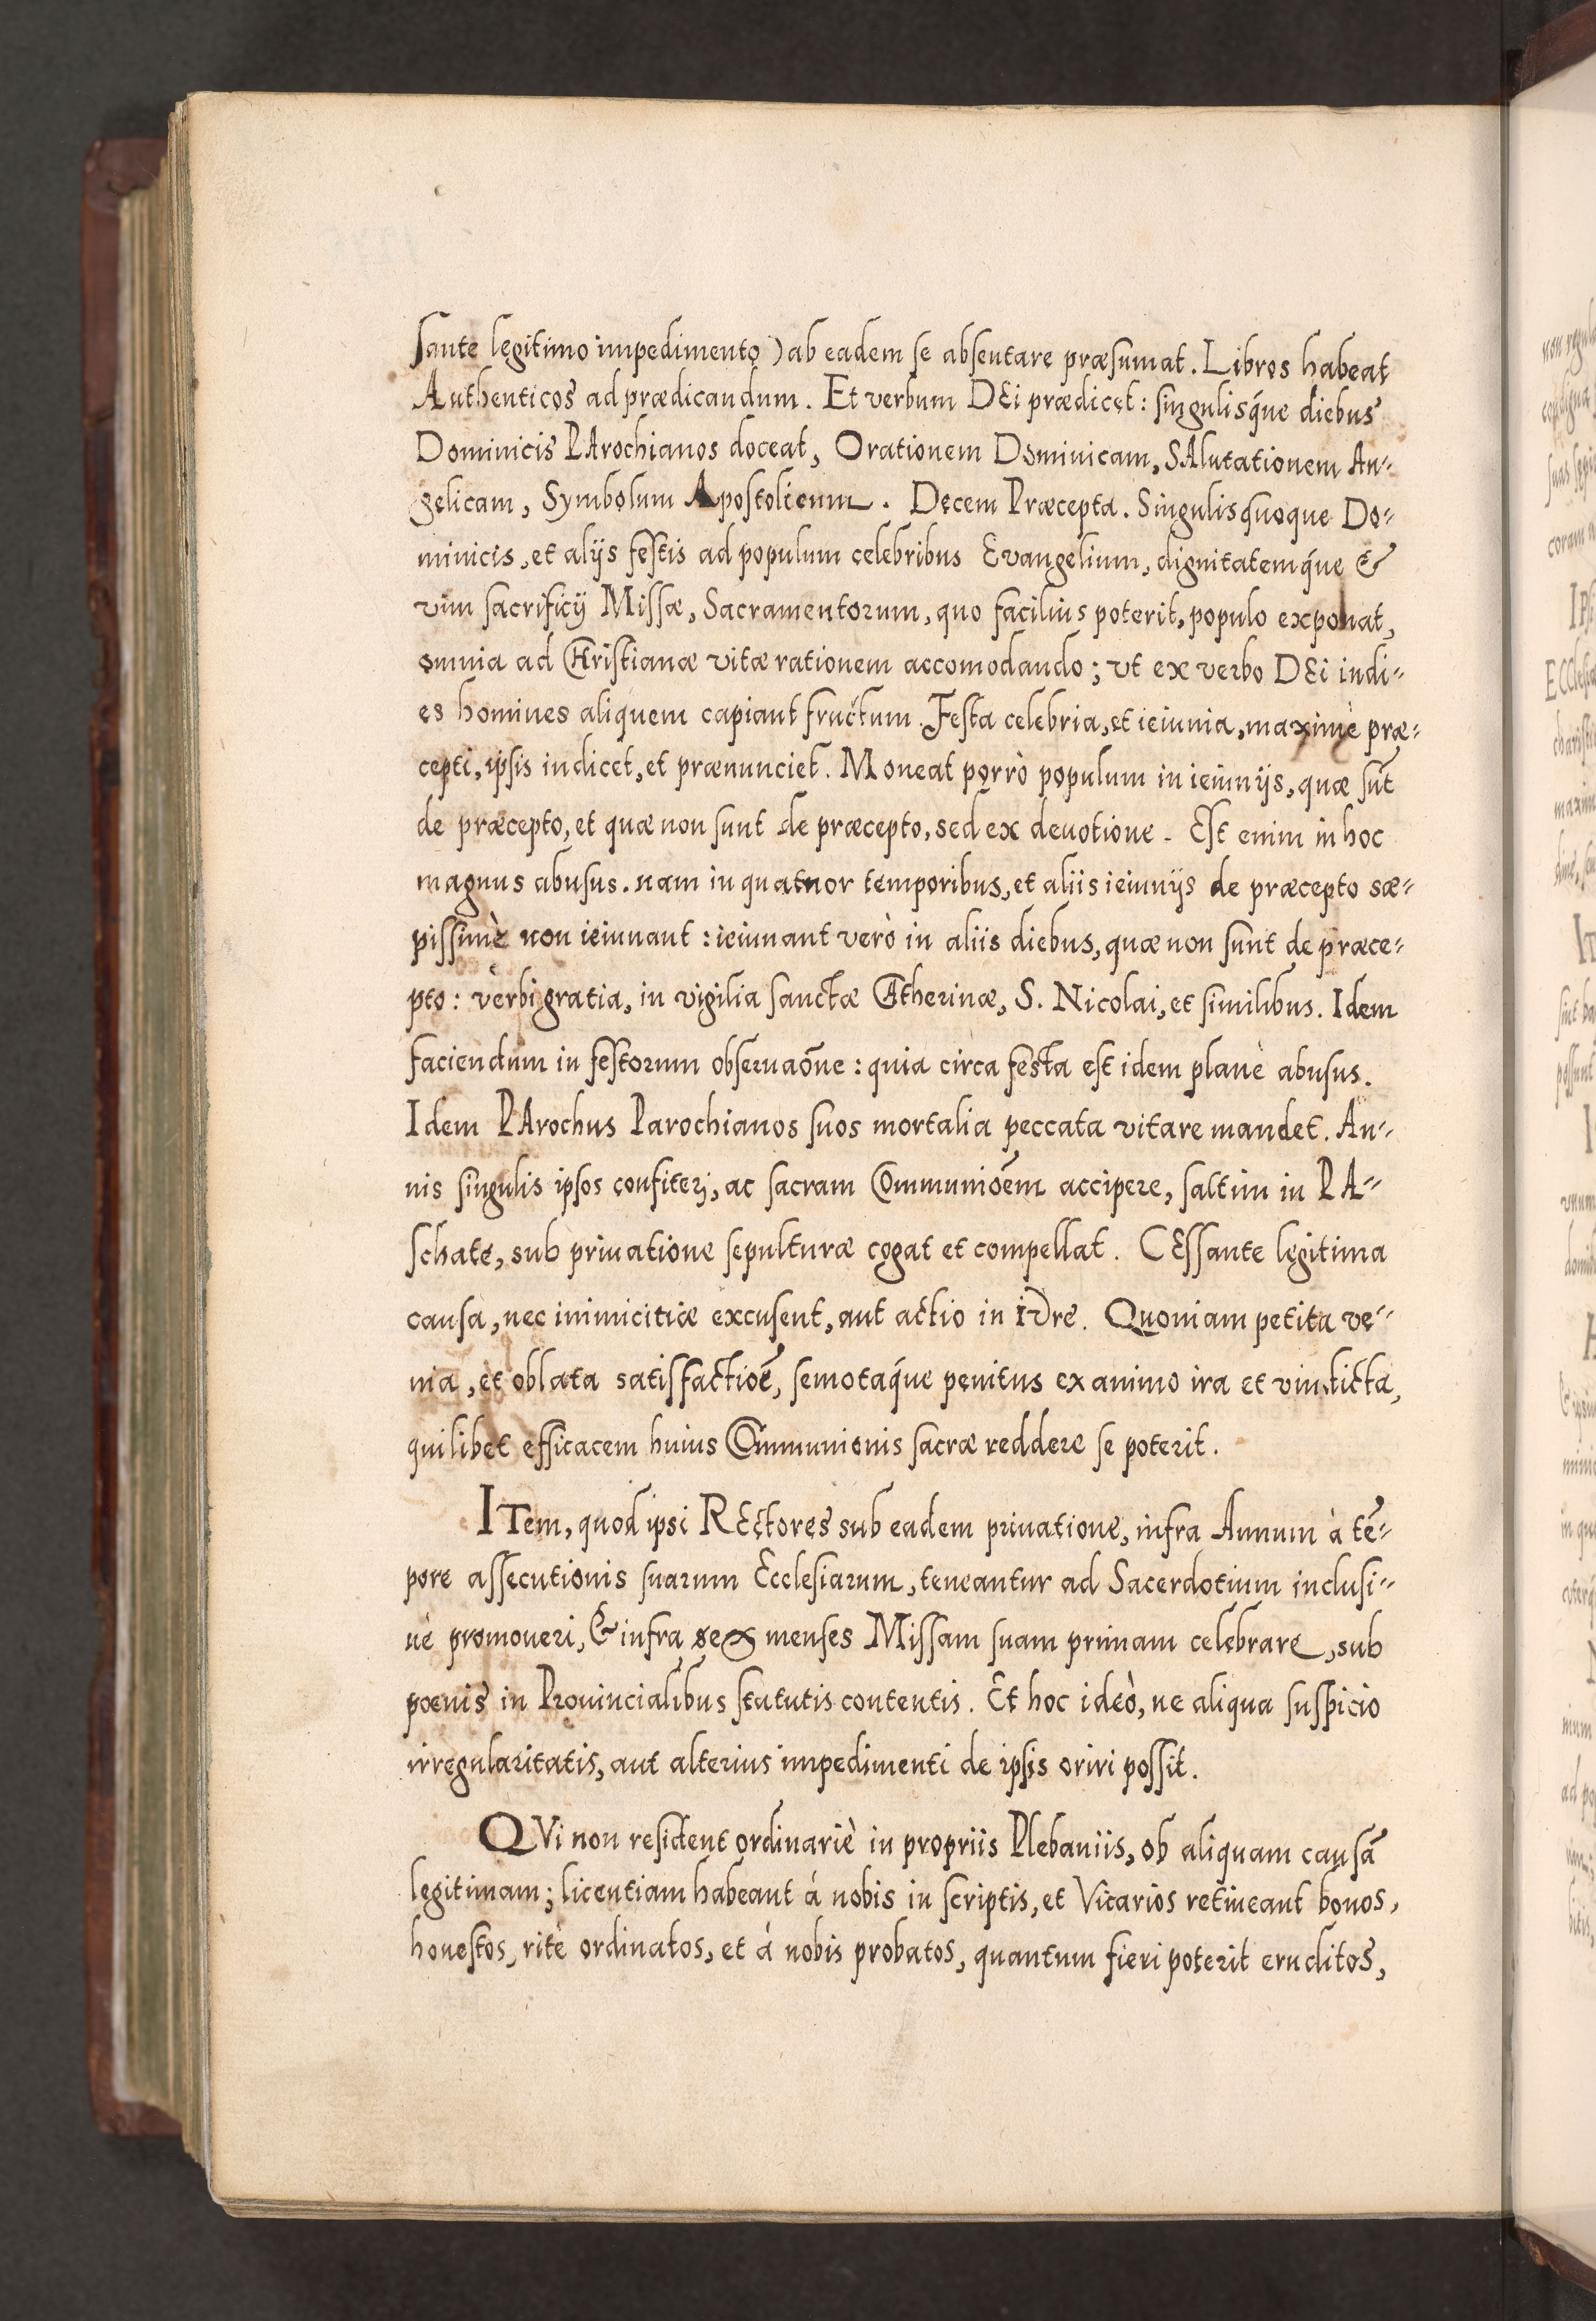 sante legitimo impedimento) ab eadem se absentare præsumat. Libros habeat
Authenticos ad prædicandum. Et verbum DEi prædicet: singulisq́ue diebus
Dominicis PArochianos doceat, Orationem Dominicam, SAlutationem An=
gelicam, Symbolum Apostolicum. Decem Præcepta. Singulis quoque Do=
minicis, et alijs festis ad populum celebribus Evangelium, dignitatemq́ue &
vim sacrificij Missæ, Sacramentorum, quo facilius poterit, populo exponat,
omnia ad CHristianæ vitæ rationem accomodando; vt ex verbo DEi indi=
es homines aliquem capiant fructum. Festa celebria, et ieiunia, maximè præ=
cepti, ipsis indicet, et prænunciet. Moneat porrò populum in ieiunijs, quæ sūt
de præcepto, et quæ non sunt de præcepto, sed ex deuotione. Est enim in hoc
magnus abusus. nam in quatuor temporibus, et aliis ieiunijs de præcepto sæ=
pissimè non ieiunant: ieiunant verò in aliis diebus, quæ non sunt de præce=
pto: verbi gratia, in vigilia sanctæ CAtherinæ, S. Nicolai, et similibus. Idem
faciendum in festorum obseruaōne: quia circa festa est idem planè abusus.
Idem PArochus Parochianos suos mortalia peccata vitare mandet. An=
nis singulis ipsos confiteri, ac sacram COmmunioēm accipere, saltim in PA=
schate, sub priuatione sepulturæ cogat et compellat. CEssante legitima
causa, nec inimicitiæ excusent, aut actio in iVre. Quoniam petita ve=
nia, et oblata satisfactioē, semotaq́ue penitus ex animo ira et vindicta,
quilibet efficacem huius COmmunionis sacræ reddere se poterit.
ITem, quod ipsi REctores sub eadem priuatione, infra Annum à tē=
pore assecutionis suarum Ecclesiarum, teneantur ad Sacerdotium inclusi=
uè promoueri, & infra sex menses Missam suam primam celebrare, sub
poenis in Prouincialibus statutis contentis. Et hoc ideò, ne aliqua suspicio
irregularitatis, aut alterius impedimenti de ipsis oriri possit.
QVi non resident ordinariè in propriis Plebaniis, ob aliquam causā
legitimam; licentiam habeant á nobis in scriptis, et Vicarios retineant bonos,
honestos, ritè ordinatos, et á nobis probatos, quantum fieri poterit eruditos,